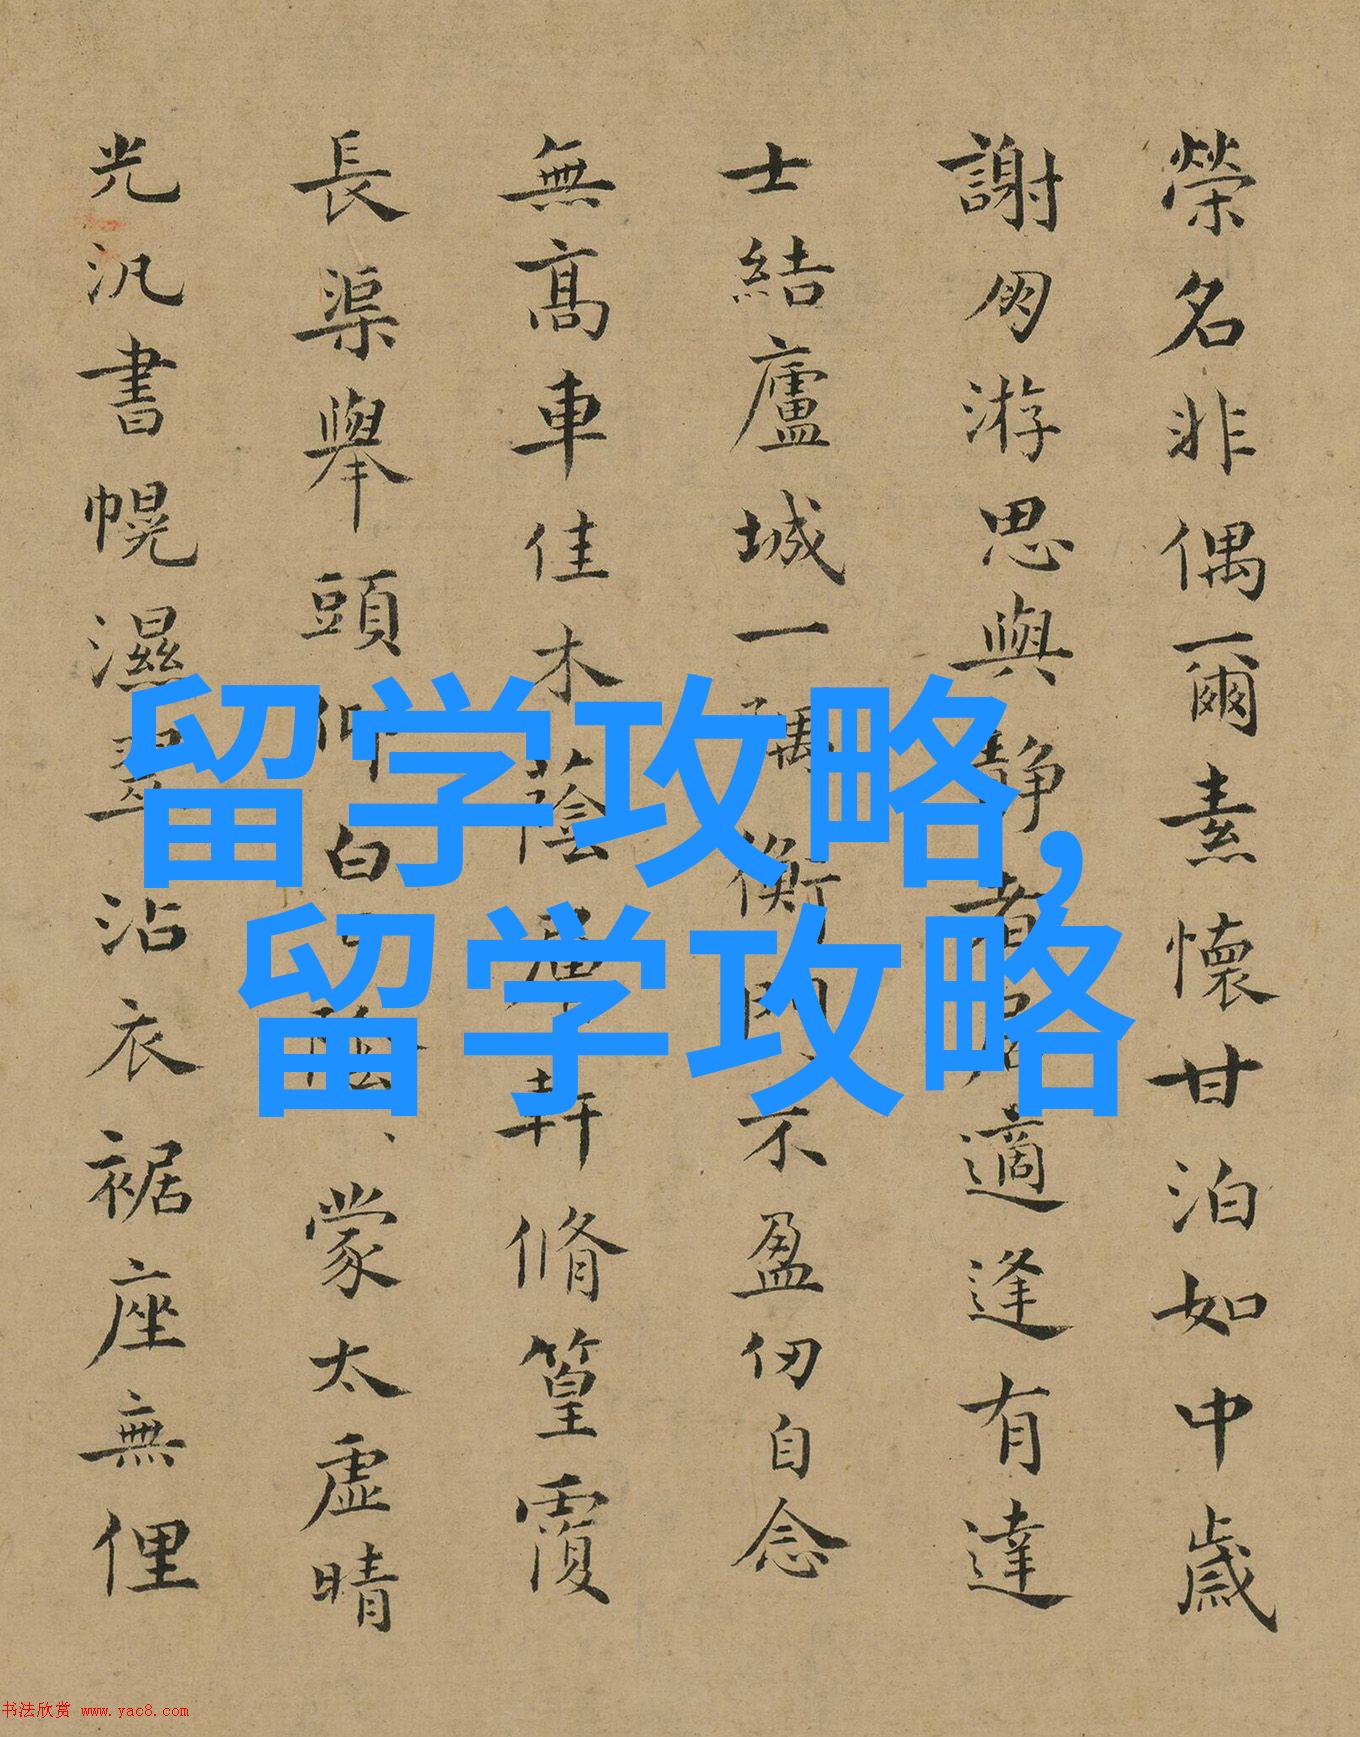 榮名非偶爾素懷甘泊如中歲
謝朋游思與静者居適逢有達
士結廬城一隅衡門不盈仞自念
無髙車佳木蔭層軒脩篁覆
長渠舉頭仰白日陰蒙太虚晴
光汎書幌濕翠沾衣裾座無俚
留学攻略,
留学攻略
书法欣赏 www.yac8.com